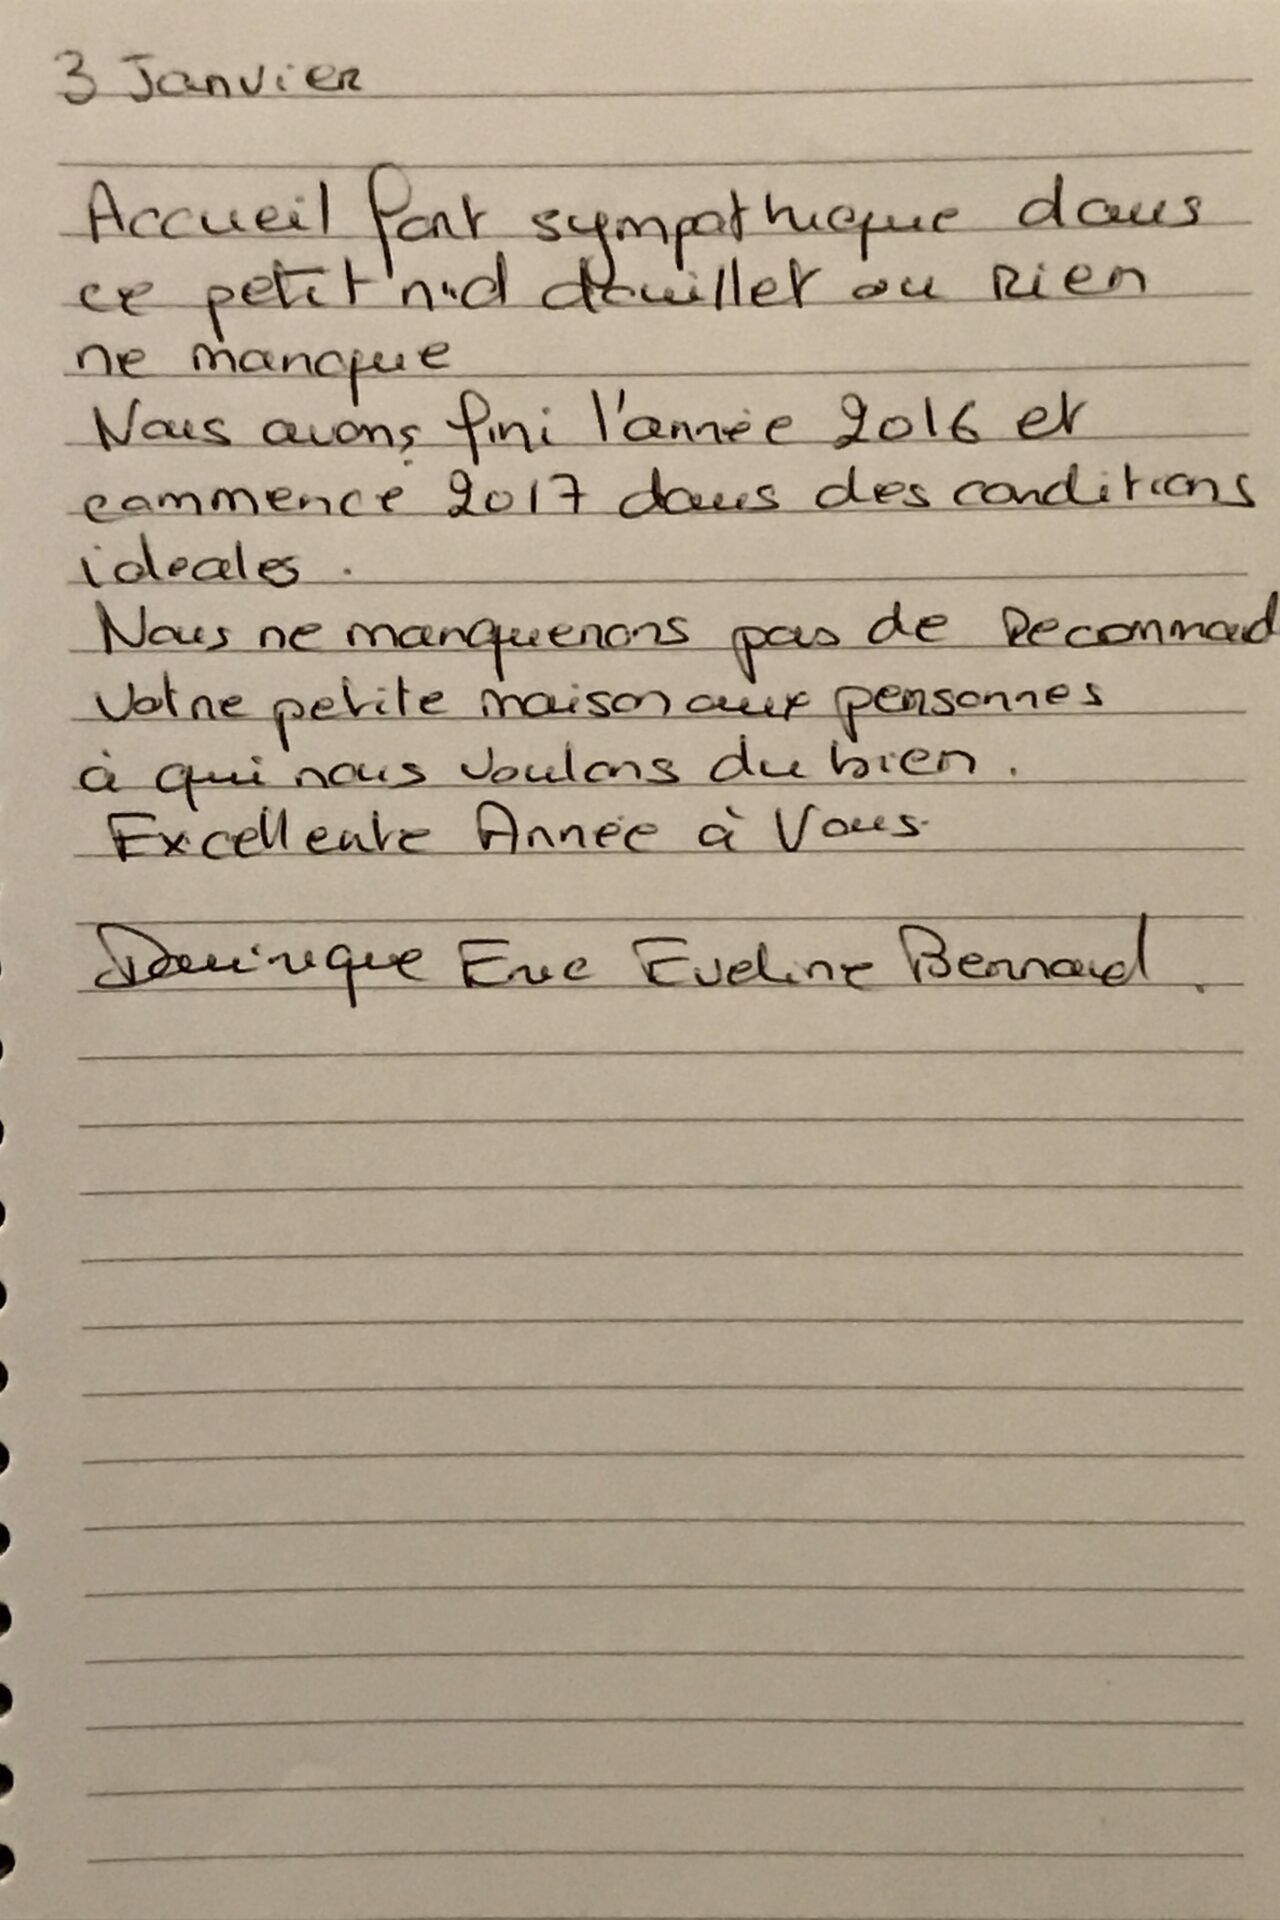 3 Janvier
Accueil fort sympathique dans
ce petit nid douillet ou rien
ne manque
Nous avons fini l'année 2016 et
commencé 2017 dans des conditions
ideales.
Nous ne manquerons pas de recommad
votre petite maison aux personnes
à qui nous voulons du bien.
Excellente Année à Vous.
Dominique Eric Eveline Bernard.